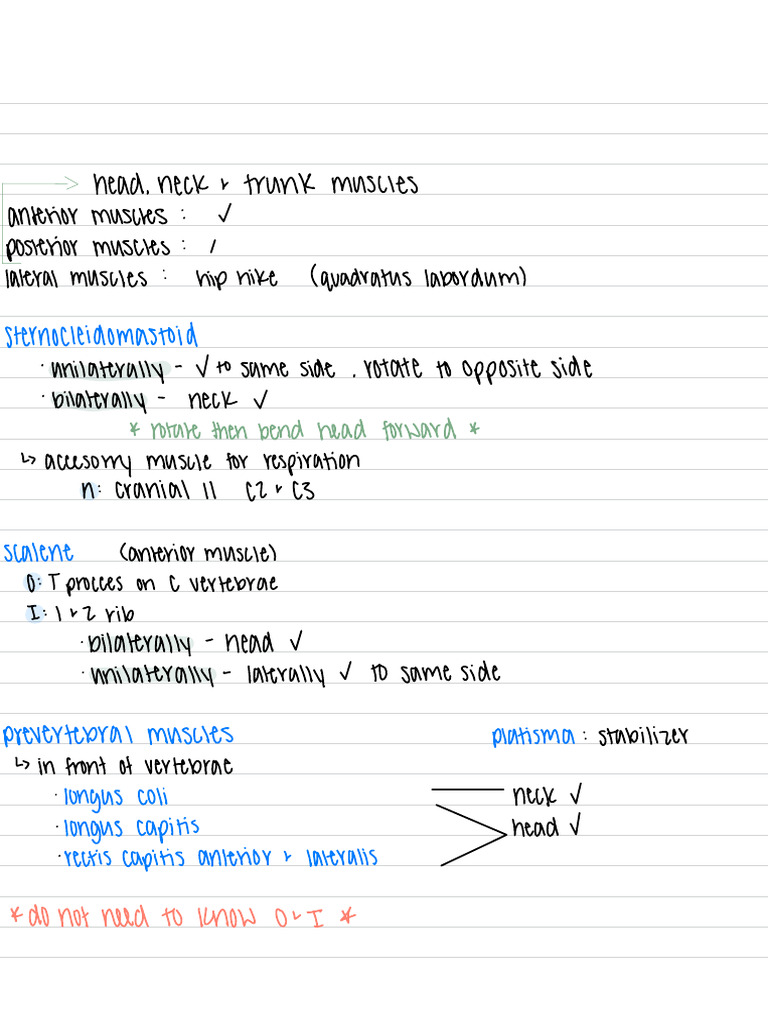 head, neck & trunk muscles
anterior muscles : ✓
posterior muscles : /
lateral muscles : hip hike (quadratus labordum)
sternocleidomastoid
· unilaterally - ✓ to same side . rotate to opposite side
· bilaterally - neck ✓
* rotate then bend head forward *
↳ accesorry muscle for respiration
n: cranial 11 C2 & C3
scalene (anterior muscle)
O: T procces on C vertebrae
I: 1 & 2 rib
· bilaterally - head ✓
· unilaterally - laterally ✓ to same side
prevertebral muscles platisma : stabilizer
↳ in front of vertebrae
· longus coli neck ✓
· longus capitis head ✓
· rectis capitis anterior & lateralis
* do not need to know O & I *